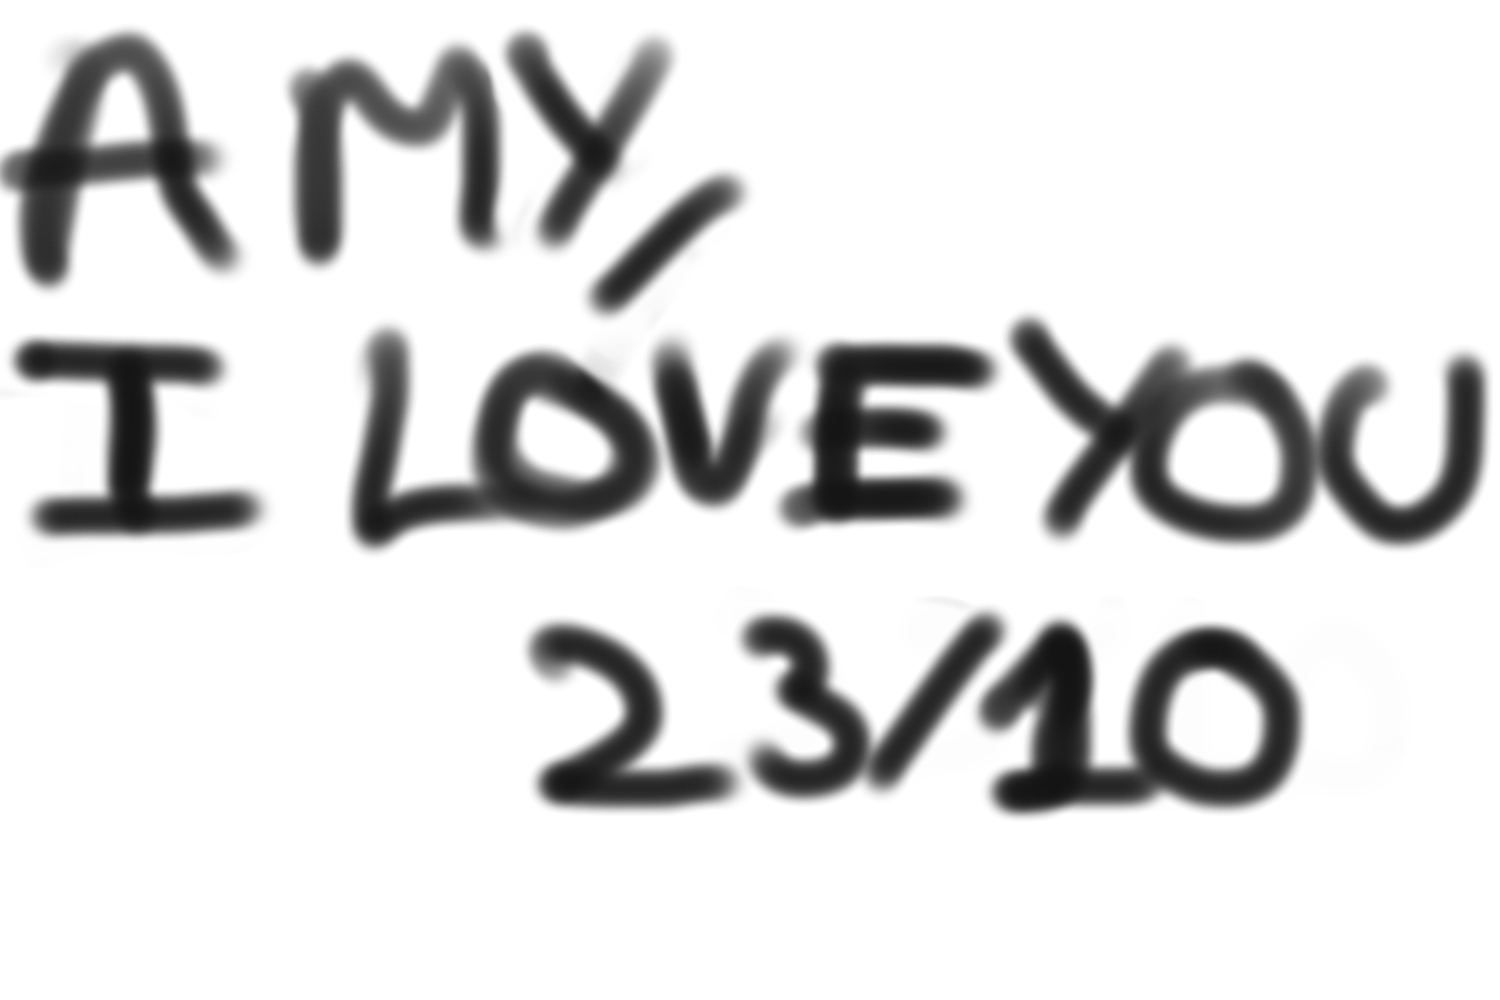 AMY,
I LOVE YOU
23/10